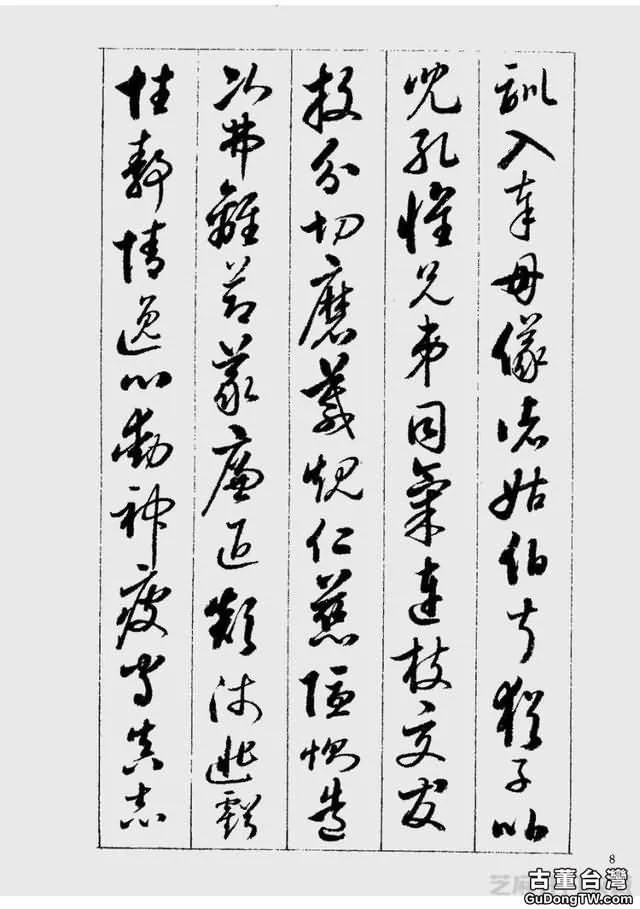 訓入奉母儀諸姑伯叔猶子比
兒孔懷兄弟同氣連枝交友
投分切磨箴規仁慈隱惻造
次弗離節義廉退顛沛匪虧
性靜情逸心動神疲守真志
8
古董台灣
GuDongTW.com